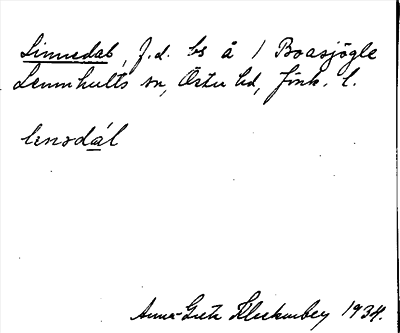 Linnedal, f.d. bs å / Boasjögle
Lemnhults sn, Östra hd, Jönk. l.
lensdál
Anna-Greta Kleckenberg 1934.